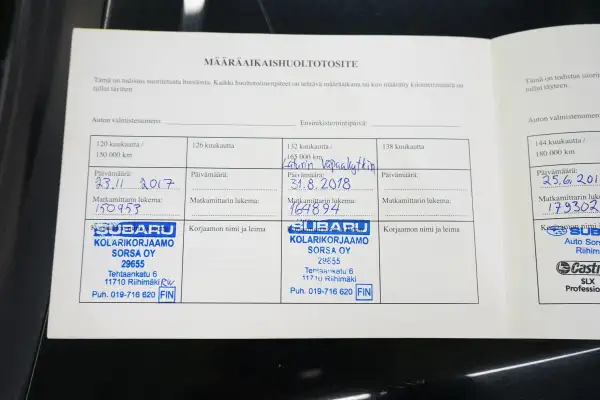 MÄÄRÄAIKAISHUOLTOTOSITE
Tämä on todistus suoritetusta huollosta. Kaikki huoltotoimenpiteet on tehtävä määräaikana tai kun määrätty kilometrimäärä on
tullut täyteen.
Auton valmistenumero: Ensirekisteröintipäivä:
120 kuukautta /
150 000 km
Päivämäärä:
23.11 2017
Matkamittarin lukema:
150953
SUBARU
KOLARIKORJAAMO
SORSA OY
29655
Tehtaankatu 6
11710 Riihimäki
Puh. 019-716 620 FIN
126 kuukautta
Päivämäärä:
Matkamittarin lukema:
Korjaamon nimi ja leima
132 kuukautta /
165 000 km
Laturin vapaakytkin
Päivämäärä:
31.8.2018
Matkamittarin lukema:
164894
SUBARU
KOLARIKORJAAMO
SORSA OY
29655
Tehtaankatu 6
11710 Riihimäki
Puh. 019-716 620 FIN
138 kuukautta
Päivämäärä:
Matkamittarin lukema:
Korjaamon nimi ja leima
Tämä on todistus
tullut täyteen.
Auton valmistenum
144 kuukautta /
180 000 km
Päivämäärä:
25.6.201
Matkamittarin luke
179302
SUB
Auto Sors
Riihim
Castr
SLX
Professio